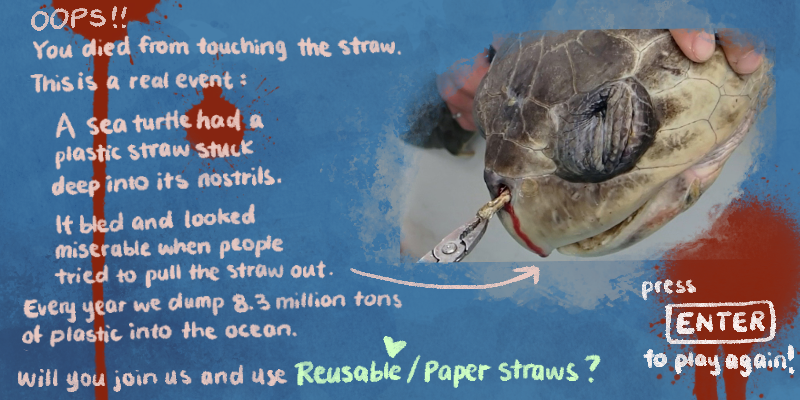 OOPS!!
You died from touching the straw.
This is a real event:
A sea turtle had a
plastic straw stuck
deep into its nostrils.
It bled and looked
miserable when people
tried to pull the straw out.
Every year we dump 8.3 million tons
of plastic into the ocean.
Will you join us and use Reusable/Paper straws?
press
ENTER
to play again!